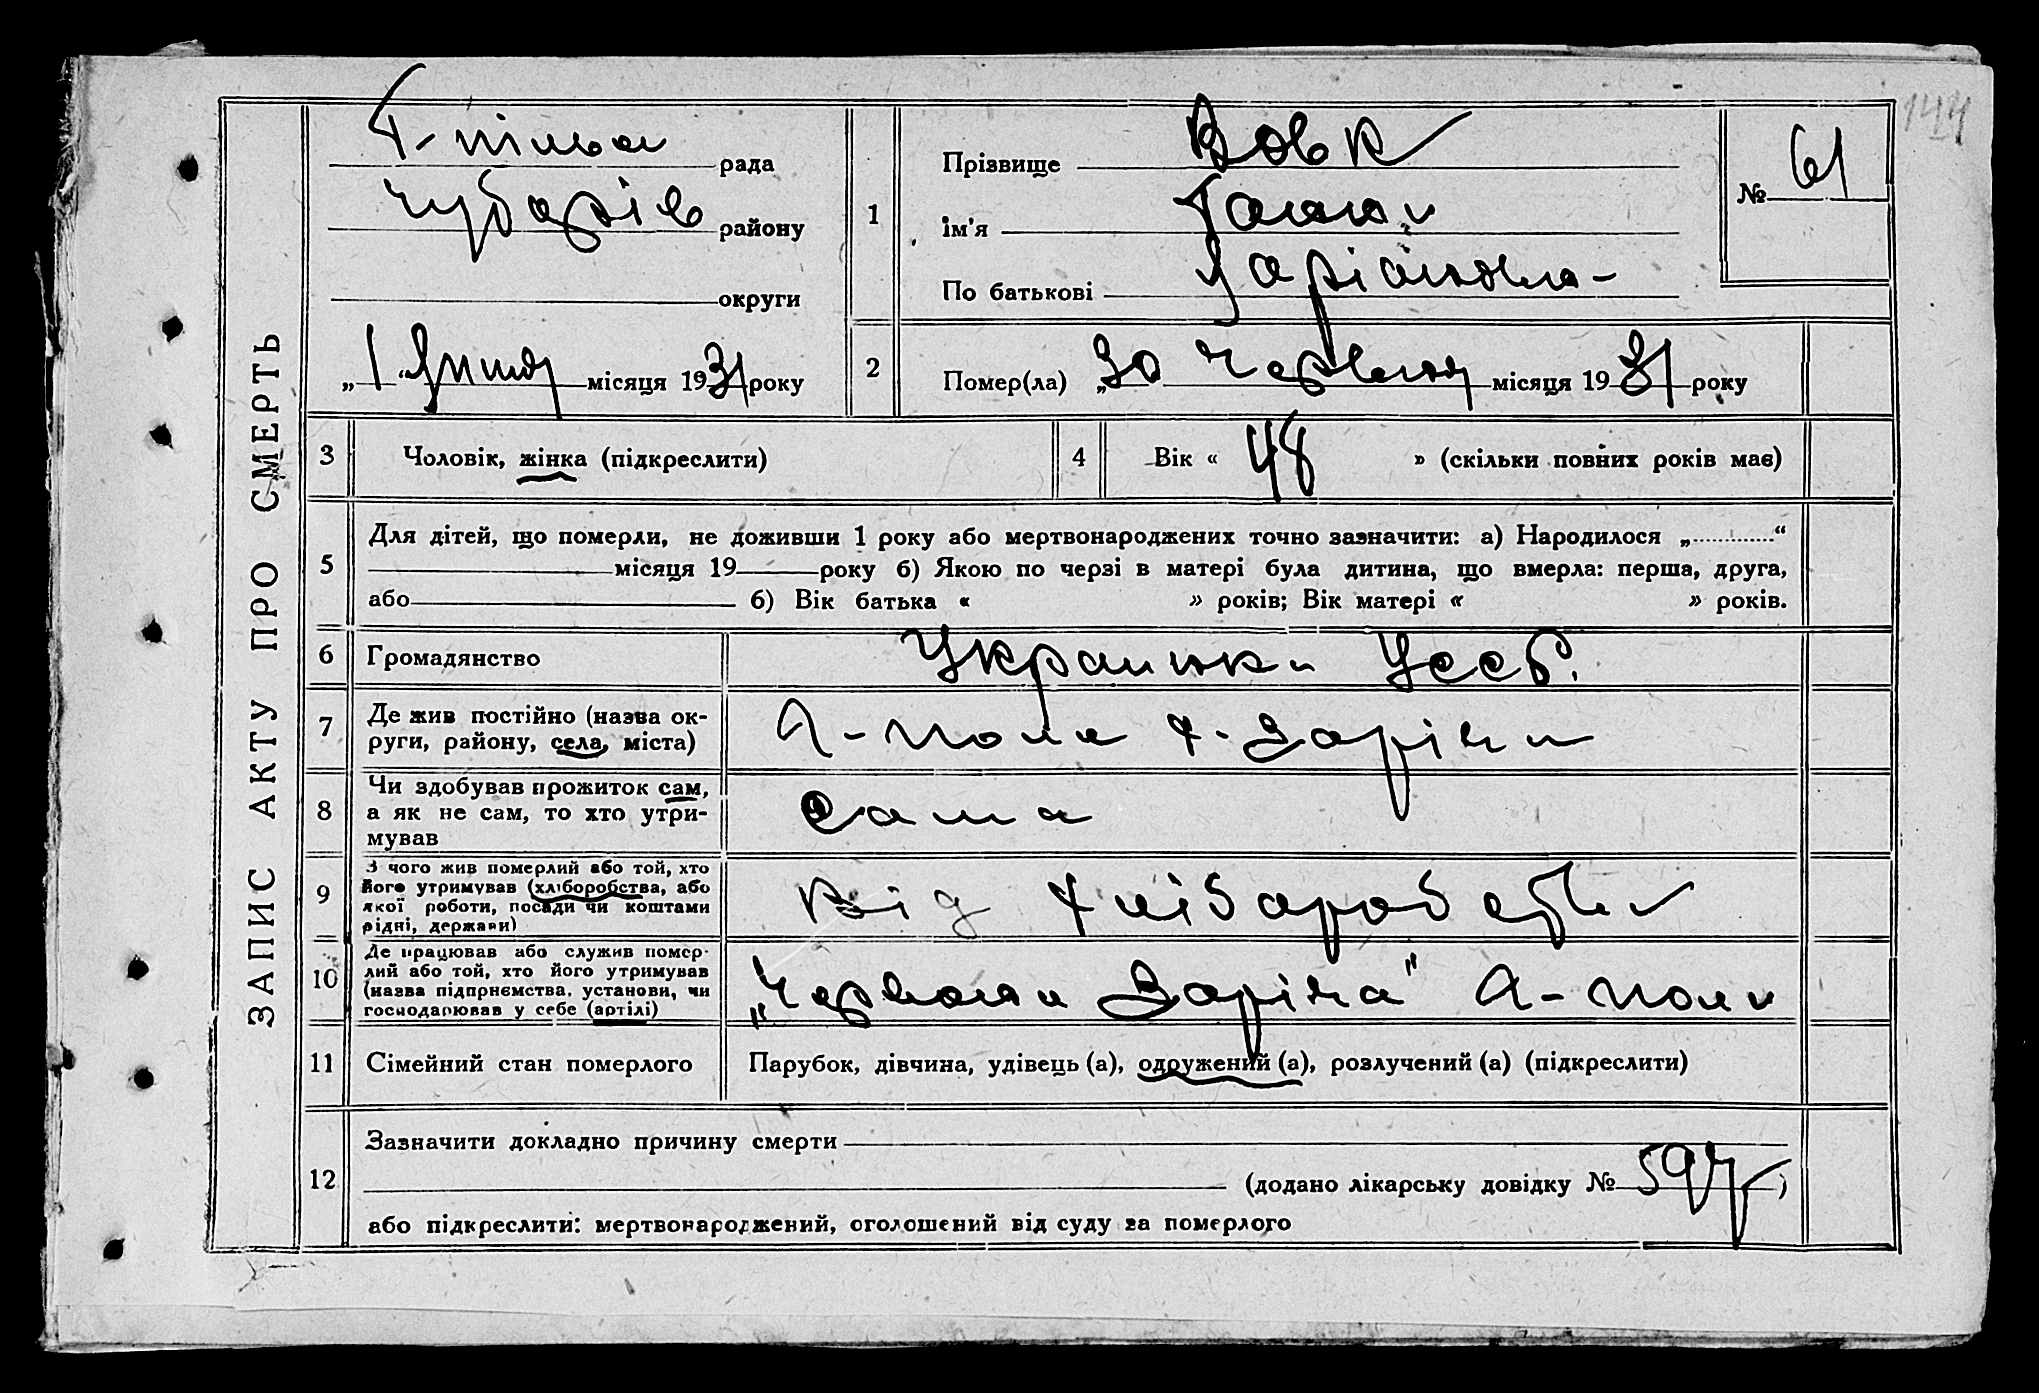 144
ЗАПИС АКТУ ПРО СМЕРТЬ
рада
Чубарів району
округи
„1“ Липня місяця 1931 року
1
Прізвище Вовк
Ім'я Ганна
По батькові
№ 61
2
Помер(ла) „30 Червня місяця 1931 року
3 Чоловік, жінка (підкреслити)
4 Вік « 48 » (скільки повних років має)
5
Для дітей, що померли, не доживши 1 року або мертвонароджених точно зазначити: а) Народилося „ “
місяця 19 року б) Якою по черзі в матері була дитина, що вмерла: перша, друга,
або б) Вік батька « » років; Вік матері « » років.
6 Громадянство Украинка Уссб.
7
Де жив постійно (назва ок-
руги, району, села, міста)
8
Чи здобував прожиток сам,
а як не сам, то хто утри-
мував
Сама
9
З чого жив померлий або той, хто
його утримував (хліборобства, або
якої роботи, посади чи коштами
рідні, держави)
Від Хліборобства
10
Де працював або служив помер-
лий або той, хто його утримував
(назва підприємства, установи, чи
господарював у себе (артілі)
11 Сімейний стан померлого
Парубок, дівчина, удівець (а), одружений (а), розлучений (а) (підкреслити)
12
Зазначити докладно причину смерти
(додано лікарську довідку № 597)
або підкреслити: мертвонароджений, оголошений від суду за померлого